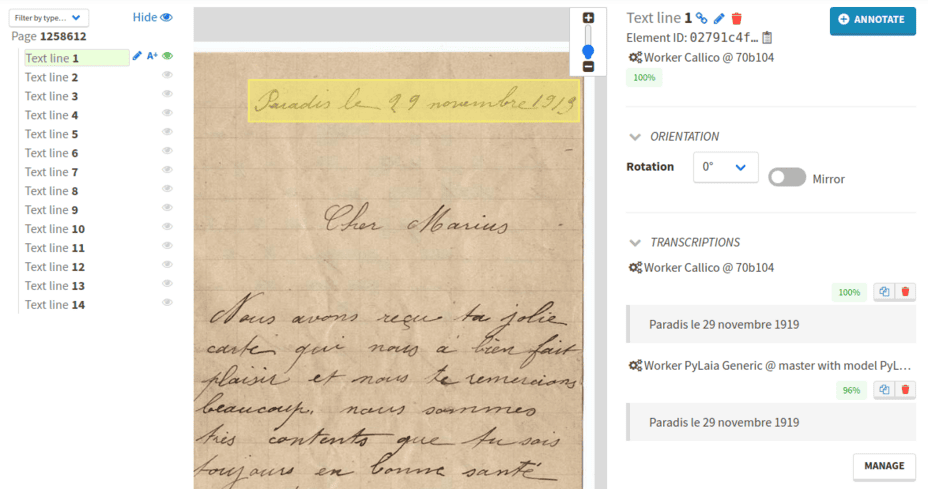 Filter by type...
Hide
Page 1258612
Text line 1
A+
Text line 2
Text line 3
Text line 4
Text line 5
Text line 6
Text line 7
Text line 8
Text line 9
Text line 10
Text line 11
Text line 12
Text line 13
Text line 14
Paradis le 29 novembre 1919
Cher Marius
Nous avons reçu ta jolie
carte qui nous a bien fait
plaisir et nous te remercions
beaucoup, nous sommes
très contents que tu sois
toujours en bonne santé
Text line 1
ANNOTATE
Element ID: 02791c4f…
Worker Callico @ 70b104
100%
ORIENTATION
Rotation
0°
Mirror
TRANSCRIPTIONS
Worker Callico @ 70b104
100%
Paradis le 29 novembre 1919
Worker PyLaia Generic @ master with model PyL…
96%
Paradis le 29 novembre 1919
MANAGE